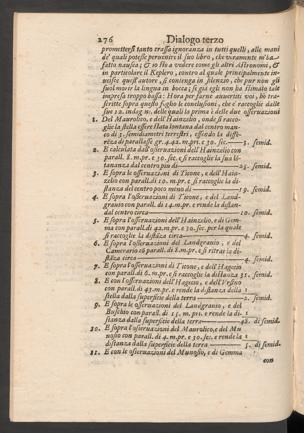 276 Dialogo terzo
promettersi tanto crassa ignoranza in tutti quelli, alle mani
de' quali potesse pervenire il suo libro, che veramente m'ha
fatto nausea; & io sto a vedere come gli altri Astronomi, &
in particolare il Keplero, contro al quale principalmente in-
uisce quest'autore, si contenga in silenzio, che pur non gli
suol morir la lingua in bocca; se già egli non ha stimato tale
impresa troppo bassa: Hora per farne avvertiti voi, hò tra-
scritte sopra questo foglio le conclusioni, che e' raccoglie dalle
sue 12. indag ni, delle quali la prima è delle due osseruazioni
1. Del Maurolico, e dell'Hainzelio, onde si racco-
glie la stella essere stata lontana dal centro man-
co di 3. semidiametri terrestri, essendo la diffe-
renza di parallasse gr. 4.42. m.pri. e 30. sec.— 3. semid.
2. E calculata dall'osseruazioni dell'Hainzelio con
parall. 8. m.pr. e 30. sec. e si raccoglie la sua lō-
tananza dal centro più di— 25. semid.
3. E sopra le osseruazioni di Ticone, e dell'Hain-
zelio con parall. di 10. m.pr. e si raccoglie la di-
stanza del centro poco meno di— 19. semid.
4. E sopra l'osseruazioni di Ticone, e del Land-
gravio con parall. di 14. m.pr. e rende la distan.
dal centro circa— 10. semid.
5. E sopra l'osseruazione dell'Hainzelio, e di Gem-
ma con parall. di 42.m.pr. e 30. sec. per la quale
si raccoglie la distāza circa— 4. semid.
6. E sopra l'osseruazioni del Landgravio, e del
Camerario cō parall. di 8.m.pr. e si ritrae la di-
stāza circa— 4. semid.
7. E sopra l'osseruazioni di Ticone, e dell'Hagecio
con parall. di 6. m.pr. e si raccoglie la distāza 31. semid.
8. E con l'osseruazioni dell'Hagecio, e dell'Vrsino
con parall. di 43. m.pr. e rende la distanza della
stella dalla superficie della terra— 2. semid.
9. E sopra le osseruazioni del Landgravio, e del
Buschio con parall. di 15. m. pri. e rende la di-
stanza dalla superficie della terra— 48. di semid.
10. E sopra l'osseruazioni del Maurolico, e del Mu
nosio con parall. di 4. m.pr. e 30. sec. e rende la 1
distanza dalla superficie della terra— 5. di semid.
11. E con le osseruazioni del Munosio, e di Gemma
con